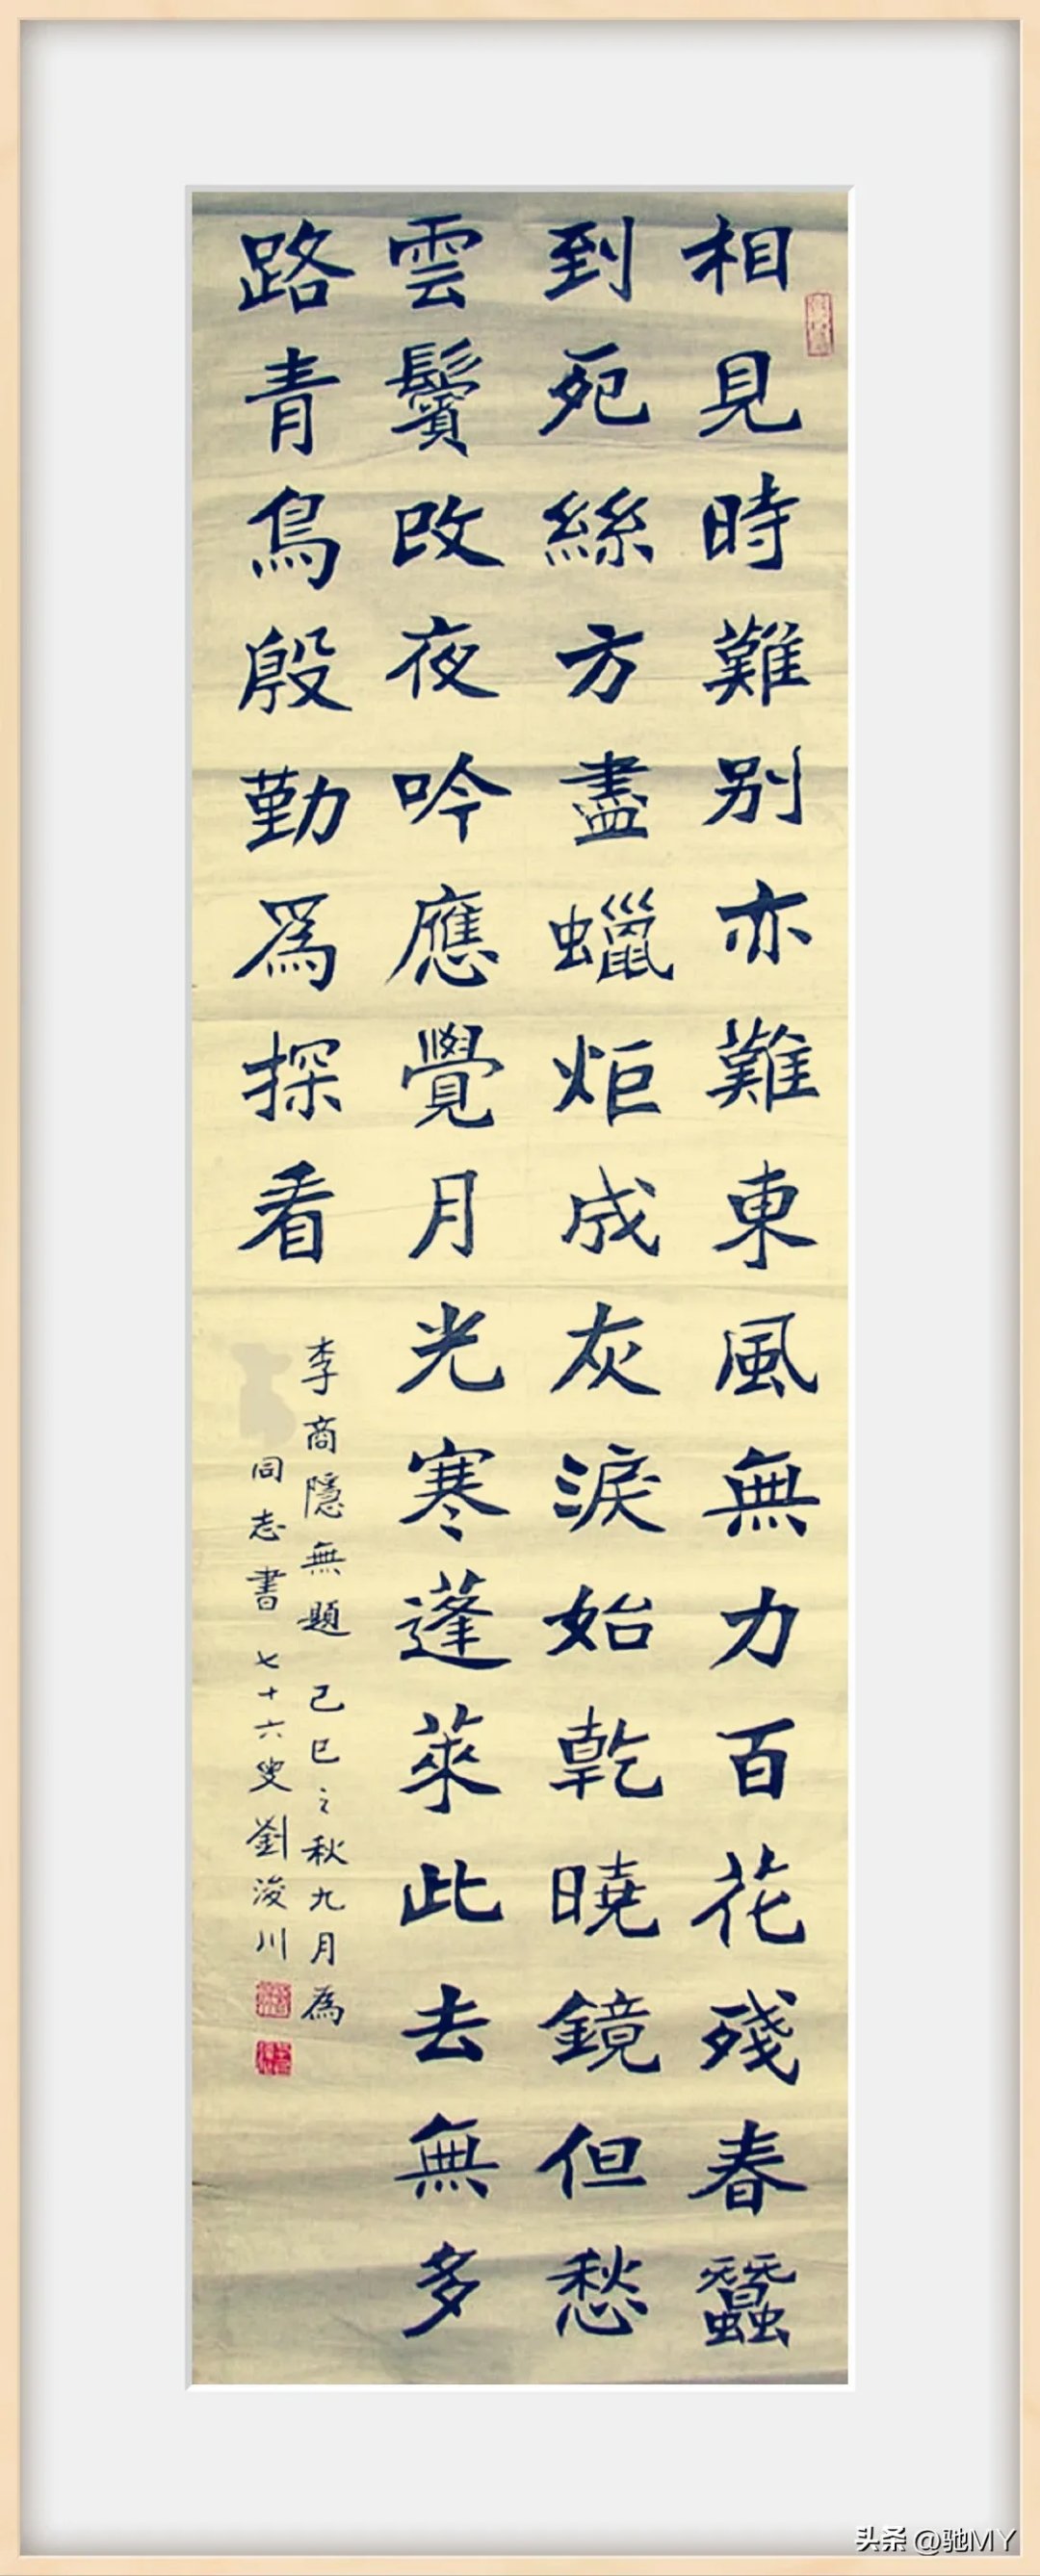 相見時難别亦難東風無力百花殘春蠶
到死絲方盡蠟炬成灰淚始乾曉鏡但愁
雲鬢改夜吟應覺月光寒蓬萊此去無多
路青鳥殷勤爲探看
李商隱無題 己巳之秋九月為
同志書 七十六叟劉浚川
头条 @驰MY